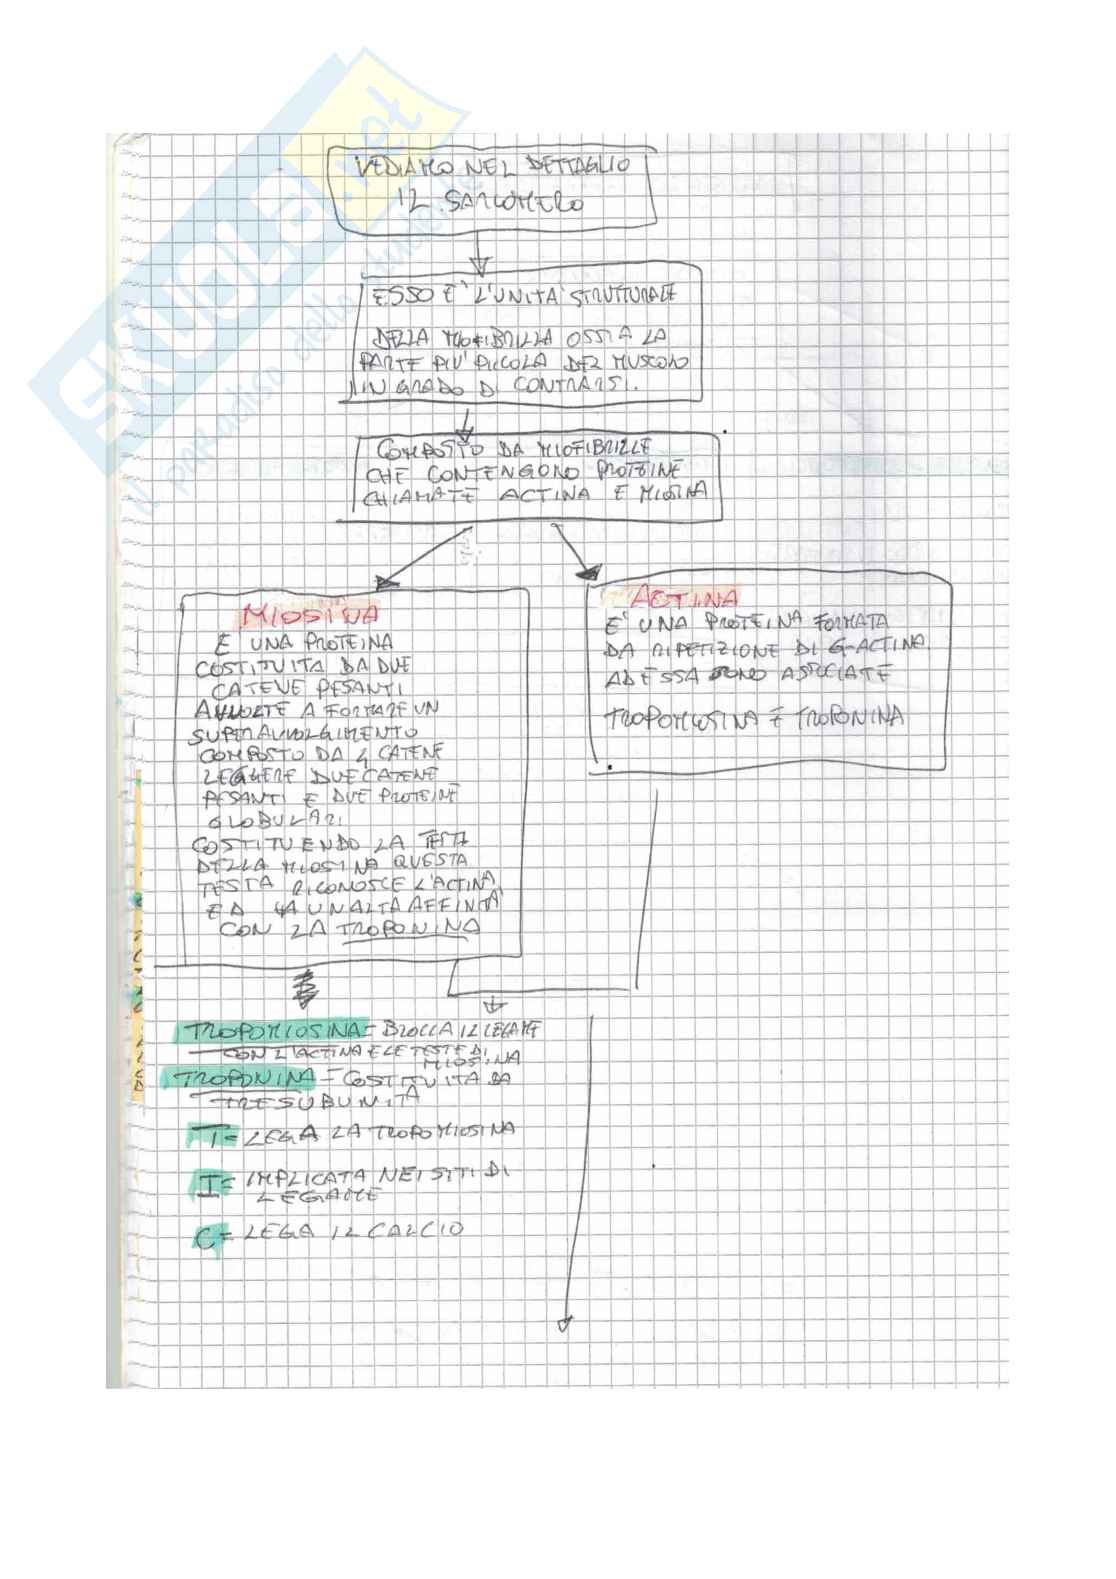 VEDIAMO NEL DETTAGLIO
IL SARCOMERO
ESSO E' L'UNITA' STRUTTURALE
DELLA MIOFIBRILLA OSSIA LA
PARTE PIU' PICCOLA DEL MUSCOLO
IN GRADO DI CONTRARSI.
COMPOSTO DA MIOFIBRILLE
CHE CONTENGONO PROTEINE
CHIAMATE ACTINA E MIOSINA
MIOSINA
E UNA PROTEINA
COSTITUITA DA DUE
CATENE PESANTI
AVVOLTE A FORMARE UN
SUPERAVVOLGIMENTO
COMPOSTO DA 4 CATENE
LEGGERE DUE CATENE
PESANTI E DUE PROTEINE
GLOBULARI
COSTITUENDO LA TESTA
DELLA MIOSINA QUESTA
TESTA RICONOSCE L'ACTINA
ED HA UN'ALTA AFFINITA'
CON LA TROPONINA
ACTINA
E' UNA PROTEINA FORMATA
DA RIPETIZIONE DI G-ACTINA.
AD ESSA SONO ASSOCIATE
TROPOMIOSINA E TROPONINA
TROPOMIOSINA = BLOCCA IL LEGAME
CON L'ACTINA E LE TESTE DI
MIOSINA
TROPONINA = COSTITUITA DA
TRE SUBUNITA'
T = LEGA LA TROPOMIOSINA
I = IMPLICATA NEI SITI DI
LEGAME
C = LEGA IL CALCIO
SKUOLA.net
il paradiso dello studente